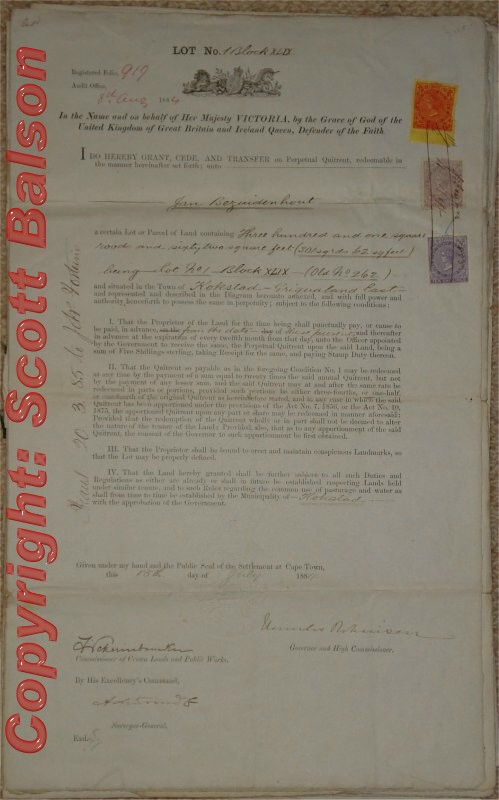 LOT No. 1 Block XLIX
Registered Folio, 919
Audit Office,
8th Aug 188
In the Name and on behalf of Her Majesty VICTORIA, by the Grace of God of the
United Kingdom of Great Britain and Ireland Queen, Defender of the Faith.
I DO HEREBY GRANT, CEDE, AND TRANSFER on Perpetual Quitrent, redeemable in
the manner hereinafter set forth; unto
Jan Bezuidenhout
a certain Lot or Parcel of Land containing Three hundred and one square
roods and sixty two square feet (301 sq rds 62 sq feet)
being Lot No 1 Block XLIX (Old No 262)
and situated in the Town of Kokstad - Griqualand East -
and represented and described in the Diagram hereunto annexed, and with full power and
authority henceforth to possess the same in perpetuity; subject to the following conditions:
I. That the Proprietor of the Land for the time being shall punctually pay, or cause to
be paid, in advance, from the date of and thereafter
in advance at the expiration of every twelfth month from that day, unto the Officer appointed
by the Government to receive the same, the Perpetual Quitrent upon the said Land, being a
sum of Five Shillings sterling, taking Receipt for the same, and paying Stamp Duty thereon.
II. That the Quitrent so payable as in the foregoing Condition No. 1 may be redeemed
at any time by the payment of a sum equal to twenty times the said annual Quitrent, but not
by the payment of any lesser sum, and the said Quitrent may at and after the same rate be
redeemed in parts or portions, provided such portions be either three-fourths, or one-half,
or one-fourth of the original Quitrent as hereinbefore stated, and in any case in which the said
Quitrent has been apportioned under the provisions of the Act No. 7, 1856, or the Act No. 10,
1875, the apportioned Quitrent upon any part or share may be redeemed in manner aforesaid:
Provided that the redemption of the Quitrent wholly or in part shall not be deemed to alter
the nature of the tenure of the Land: Provided, also, that as to any apportionment of the said
Quitrent, the consent of the Governor to such apportionment be first obtained.
III. That the Proprietor shall be bound to erect and maintain conspicuous Landmarks, so
that the Lot may be properly defined.
IV. That the Land hereby granted shall be further subject to all such Duties and
Regulations as either are already or shall in future be established respecting Lands held
under similar tenure, and to such Rules regarding the common use of pasturage and water as
shall from time to time be established by the Municipality of Kokstad
with the approbation of the Government.
Given under my hand and the Public Seal of the Settlement at Cape Town,
this 15th day of July 188
Hercules Robinson
Governor and High Commissioner.
Commissioner of Crown Lands and Public Works.
By His Excellency's Command,
Surveyor-General.
Exd.
20.3.85 to John
Copyright: Scott Balson